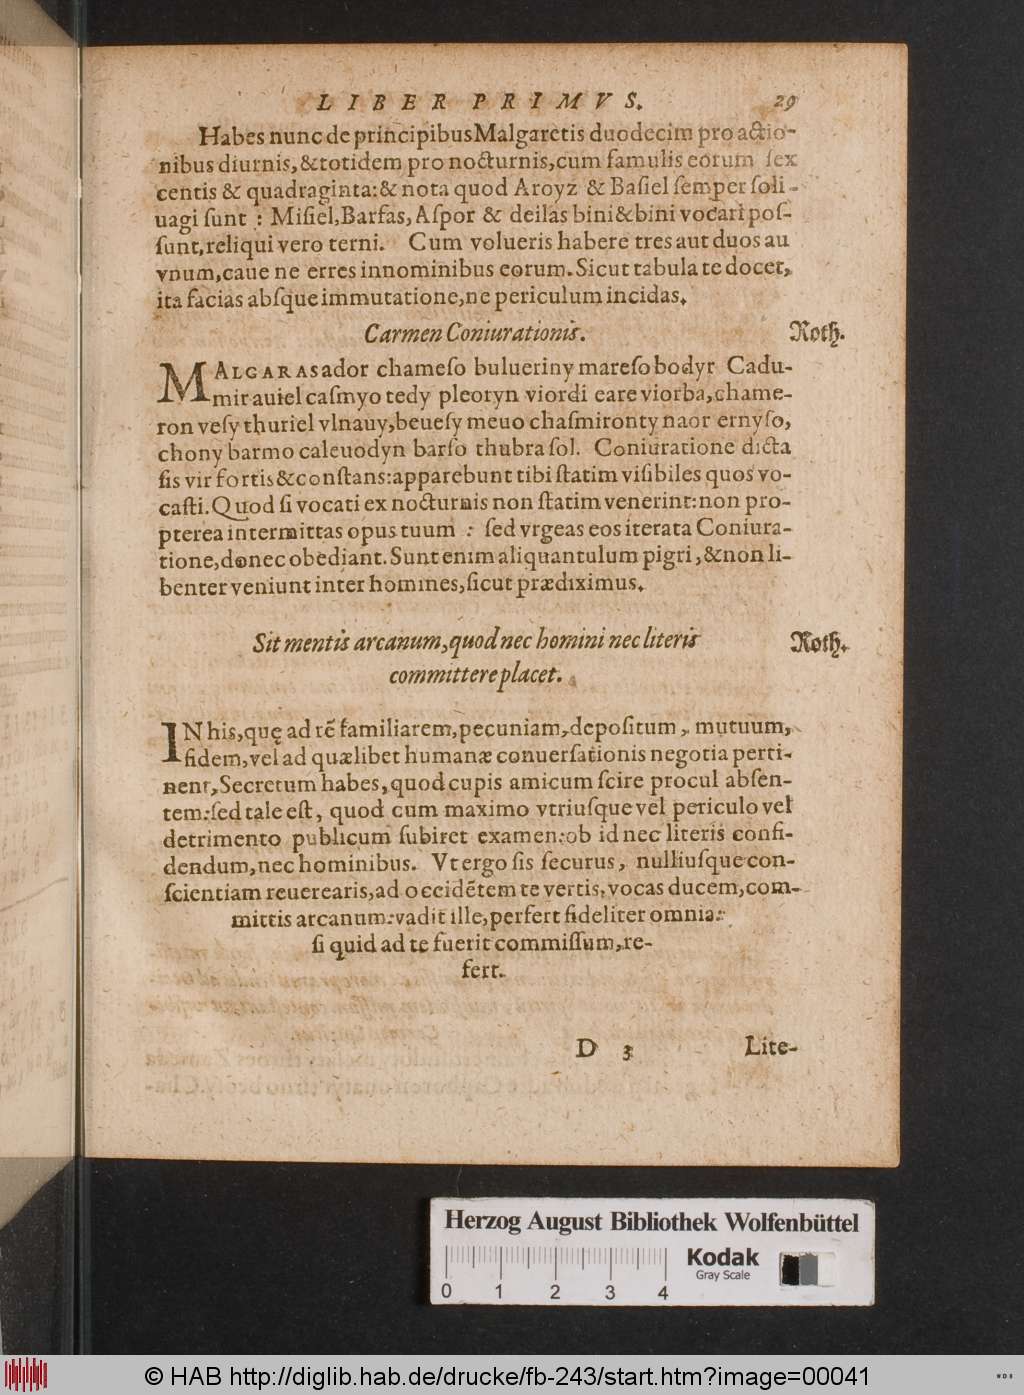 LIBER PRIMVS. 29
Habes nunc de principibus Malgaretis duodecim pro actio-
nibus diurnis, & totidem pro nocturnis, cum famulis eorum ſex
centis & quadraginta: & nota quod Aroyz & Baſiel ſemper ſoli-
uagi ſunt : Miſiel, Barfas, Aſpor & deilas bini & bini vocari poſ-
ſunt, reliqui vero terni. Cum volueris habere tres aut duos au
vnum, caue ne erres in nominibus eorum. Sicut tabula te docet,
ita facias abſque immutatione, ne periculum incidas.
Carmen Coniurationis. Roth.
MALGARAS ador chameſo bulueriny mareſo bodyr Cadu-
mir auiel caſmyo tedy pleoryn viordi eare viorba, chame-
ron veſy thuriel vlnauy, beueſy meuo chaſmironty naor ernyſo,
chony barmo caleuodyn barſo thubra ſol. Coniuratione dicta
ſis vir fortis & conſtans: apparebunt tibi ſtatim viſibiles quos vo-
caſti. Quod ſi vocati ex nocturnis non ſtatim venerint: non pro-
pterea intermittas opus tuum : ſed vrgeas eos iterata Coniura-
tione, donec obediant. Sunt enim aliquantulum pigri, & non li-
benter veniunt inter homines, ſicut prædiximus.
Sit mentis arcanum, quod nec homini nec literis Roth.
committere placet.
IN his, quę ad rē familiarem, pecuniam, depoſitum, mutuum,
fidem, vel ad quælibet humanæ conuerſationis negotia perti-
nent, Secretum habes, quod cupis amicum ſcire procul abſen-
tem: ſed tale eſt, quod cum maximo vtriuſque vel periculo vel
detrimento publicum ſubiret examen: ob id nec literis confi-
dendum, nec hominibus. Vt ergo ſis ſecurus, nulliuſque con-
ſcientiam reuerearis, ad occidētem te vertis, vocas ducem, com-
mittis arcanum: vadit ille, perfert fideliter omnia:
ſi quid ad te fuerit commiſſum, re-
fert.
D 3 Lite-
Herzog August Bibliothek Wolfenbüttel
Kodak
Gray Scale
0 1 2 3 4
© HAB http://diglib.hab.de/drucke/fb-243/start.htm?image=00041